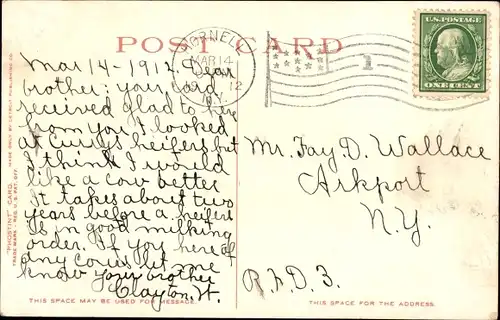 POST CARD
HORNELL
MAR 14
12
N.Y.
1
U.S. POSTAGE
ONE CENT
Mar 14-1912. Dear
brother: your card
received Glad to here
from you I looked
at curdys heifers but
I think I would
like a cow better
It takes about two
years before a heifers
is in good milking
order. If you here of
any cows let me
know your brother
Clayton. W.
Mr. Fay. D. Wallace
Arkport
N.Y.
R.F.D. 3.
"PHOSTINT" CARD.
MADE ONLY BY DETROIT PUBLISHING CO.
TRADE MARK - REG. U.S. PAT. OFF.
THIS SPACE MAY BE USED FOR MESSAGE.
THIS SPACE FOR THE ADDRESS.